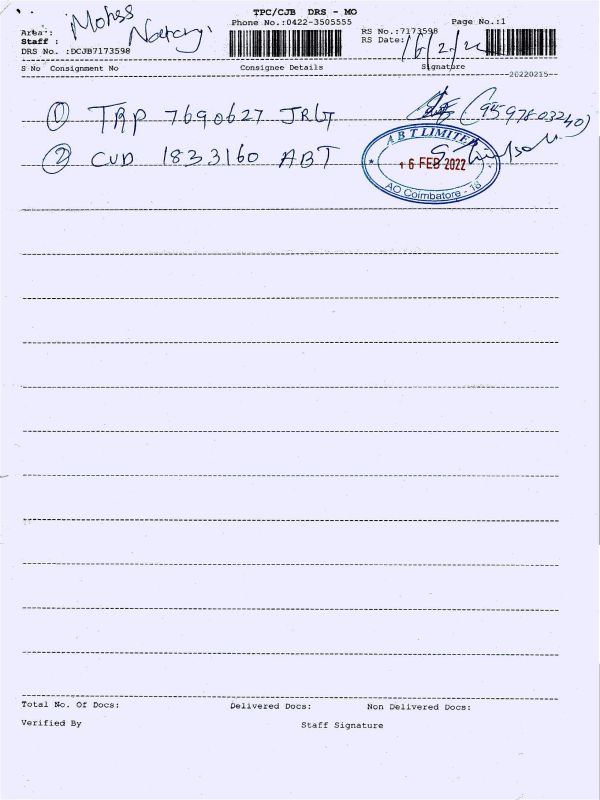 TPC/CJB DRS - MO
Phone No.:0422-3505555
Page No.:1
Area :
Staff :
DRS No. :DCJB7173598
RS No.:7173598
RS Date: 16/2/22
S No Consignment No Consignee Details Signature
20220215
① TRP 7690627 JRLT (9597803240)
② CUD 1833160 ABT
ABT LIMITED
16 FEB 2022
AO Coimbatore - 18
Total No. Of Docs: Delivered Docs: Non Delivered Docs:
Verified By Staff Signature